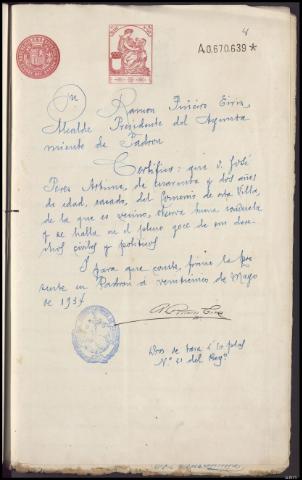 4
A.0.670.639 *
Dn Ramon Piñeiro
Alcalde Presidente del Ayunta
miento de Padron
Certifico: que D. José
Perez de cuarenta y dos años
de edad, casado, del comercio de esta Villa,
de la que es vecino, observa buena conducta
y se halla en el pleno goce de sus dere
chos civiles y políticos
Y para que conste, firmo la pre
sente en Padron a veintiuno de Mayo
de 1934
Nº 21 del